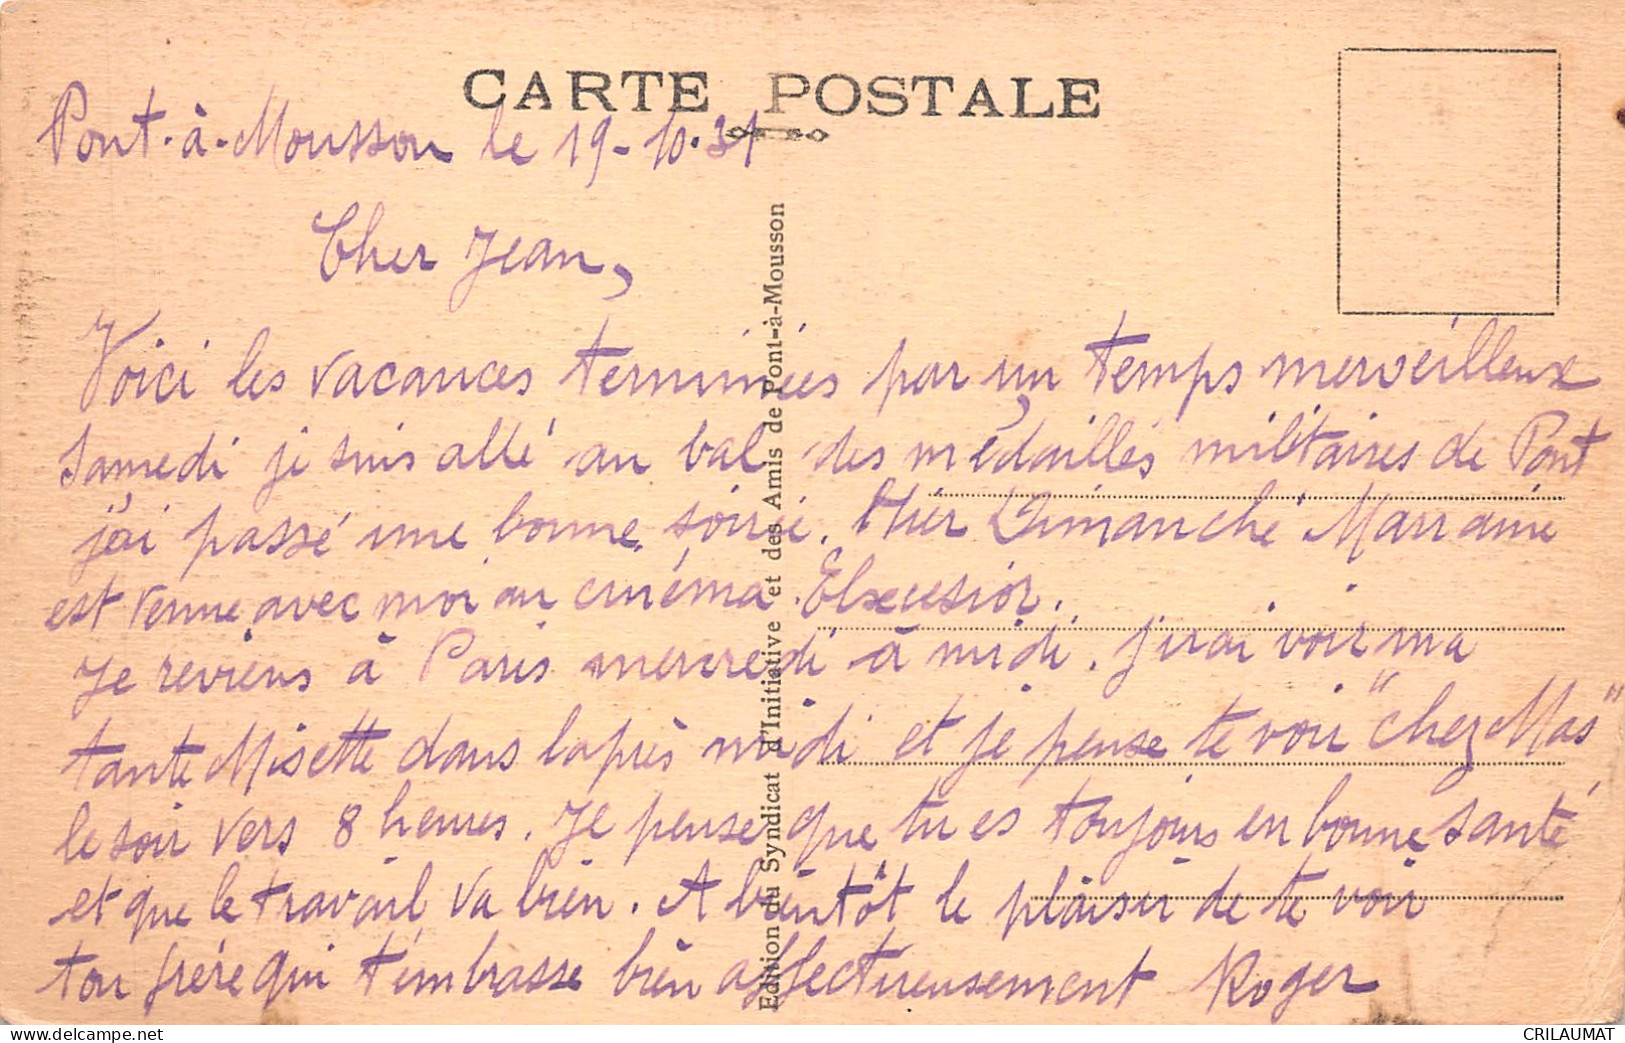 CARTE POSTALE
Pont-à-Mousson le 19-10-31
Cher Jean,
Voici les vacances terminées par un temps merveilleux
Samedi je suis allé au bal des médaillés militaires de Pont
j'ai passé une bonne soirée. Hier Dimanche Marraine
est venue avec moi au cinéma Elxcelsior.
Je reviens à Paris mercredi à midi. j'irai voir ma
tante Misette dans l'après midi et je pense te voir "chez Mas"
le soir vers 8 heures. Je pense que tu es toujours en bonne santé
et que le travail va bien. A bientôt le plaisir de te voir
ton frère qui t'embrasse bien affectueusement Roger
Edition du Syndicat d'Initiative et des Amis de Pont-à-Mousson
CRILAUMAT